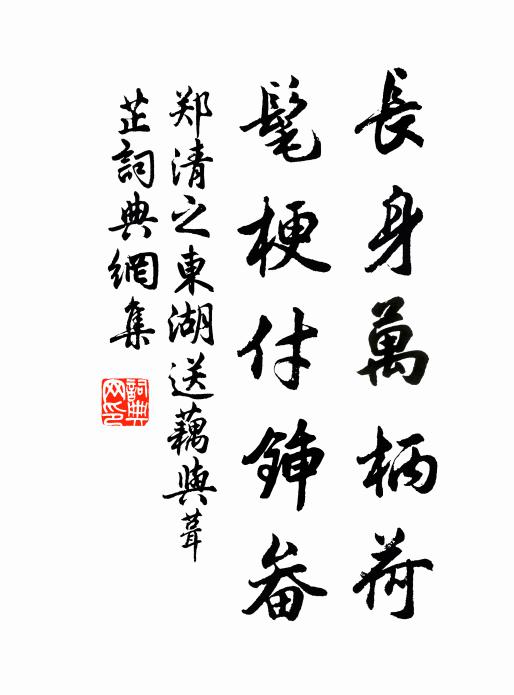 長身萬柄荷
髦梗付鍤畚
郑清之東湖送藕與葺
芷詞典網集
詞典网印